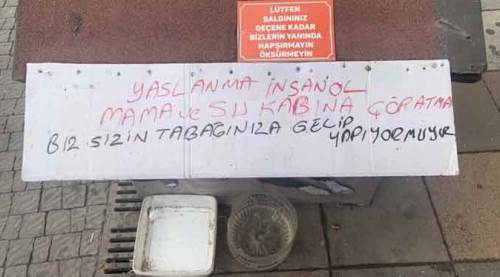 LÜTFEN
SALGINIMIZ
GEÇENE KADAR
BİZLERİN YANINDA
HAPŞIRMAYIN
ÖKSÜRMEYİN
YASLANMA İNSAN OL
MAMA ve SU KABINA ÇÖP ATMA
BİZ SİZİN TABAĞINIZA GELİP
YAPIYORMUYUZ